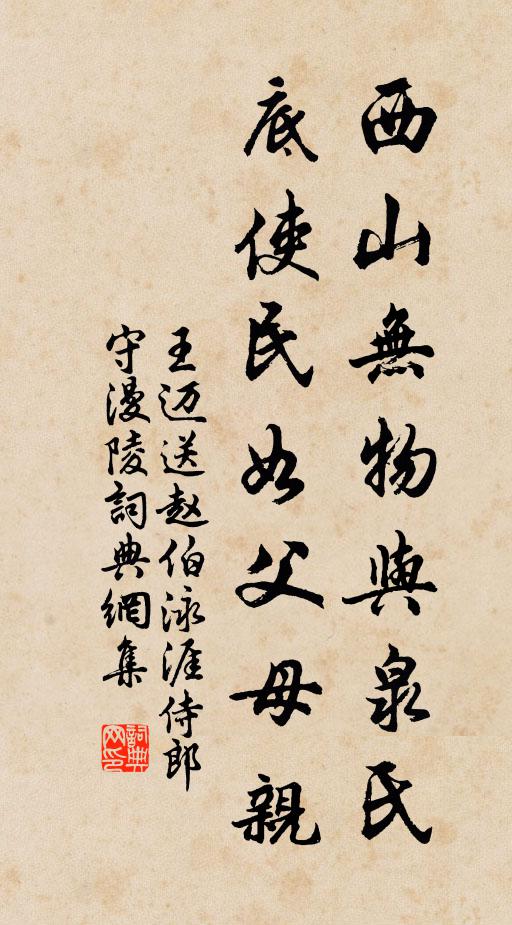 西山無物與泉民
底使民如父母親
王迈送赵伯泳涯侍郎
守漫陵詞典網集
詞典网印